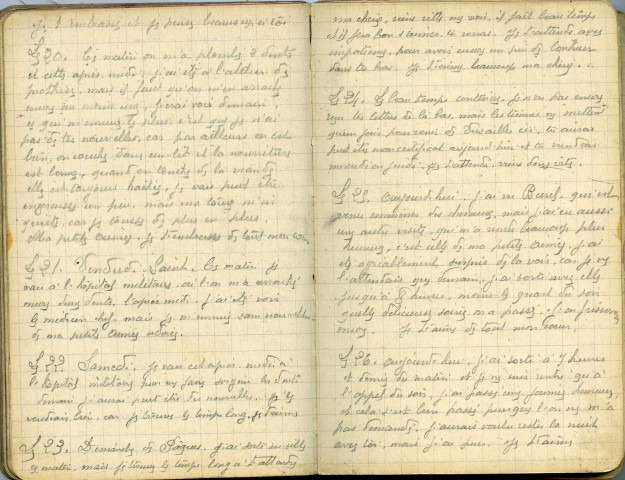 Je t'embrasse et je pense beaucoup à toi
Le 20. Ce matin on m'a plombé 2 dents
et cette après midi, j'ai été à l'atelier de
prothèse, mais il faut qu'on m'en arrache
encore au moins une, j'irai voir demain,
ce qui m'ennuie le plus, c'est que je n'ai
pas de tes nouvelles, car par ailleurs on est
bien, on couche dans un lit et la nourriture
est bonne, quand on touche de la viande
elle est toujours hachée, je vais peut être
engraisser un peu, mais ma toux m'in
quiète, car je tousse de plus en plus.
Ma petite Aimée, je t'embrasse de tout mon cœur
Le 21. Vendredi Saint. Ce matin je
vais à l'hôpital militaire où l'on m'a arraché
encore deux dents, l'après midi, j'ai été voir
le médecin chef, mais je m'ennuie sans nouvelles
de ma petite Aimée adorée.
Le 22. Samedi. je vais cet après midi à
l'hôpital militaire pour me faire soigner les dents
demain j'aurai peut être des nouvelles. Je le
voudrais bien car je trouve le temps long, je t'aime
Le 23. Dimanche de Pâques. j'ai sorti en ville
ce matin, mais je trouve le temps long à t'attendre
ma chérie, viens vite me voir, il fait beau temps
et il fera bon si on se revoit. Je t'attends avec
impatience, pour avoir encore un peu de bonheur
dans tes bras. Je t'aime beaucoup ma chérie.
Le 24. Le beau temps continue, je n'ai pas encore
reçu tes lettres de là bas, mais les tiennes mettent
quinze jours pour venir de Versailles ici, tu auras
peut être mon certificat aujourd'hui et tu viendras
mercredi ou jeudi. Je t'attends, viens donc vite.
Le 25. aujourd'hui j'ai vu Burel qui est
venu emmener des chevaux, mais j'ai eu aussi
une autre visite, qui m'a rendu beaucoup plus
heureux, c'est celle de ma petite Aimée, j'ai
été agréablement surpris de la voir, car je ne
l'attendais que demain, j'ai sorti avec elle
jusqu'à 8 heures moins le quart du soir
quelle délicieuse soirée on a passé
Je t'aime de tout mon cœur.
Le 26. aujourd'hui, j'ai sorti à 7 heures
et demie du matin et je ne suis rentré qu'à
l'appel du soir, j'ai passé une journée heureuse,
et cela s'est bien passé, puisque l'on ne m'a
pas demandé. J'aurais voulu rester la nuit
avec toi, mais j'ai peur. Je t'aime